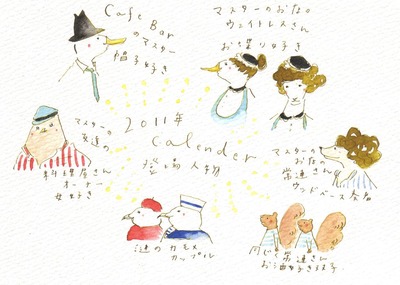 Cafe Bar
のマスター
帽子好き
マスターのおな。
ウェイトレスさん
おち喋り好き
マスターの
友達の
料理屋さん
オーナー
女好き
2011年
calender
登場人物
マスターの
おな。
常連さん
ウッドベース奏者
謎のカモメ
カップル
同じく常連さん
お酒好きな双子。